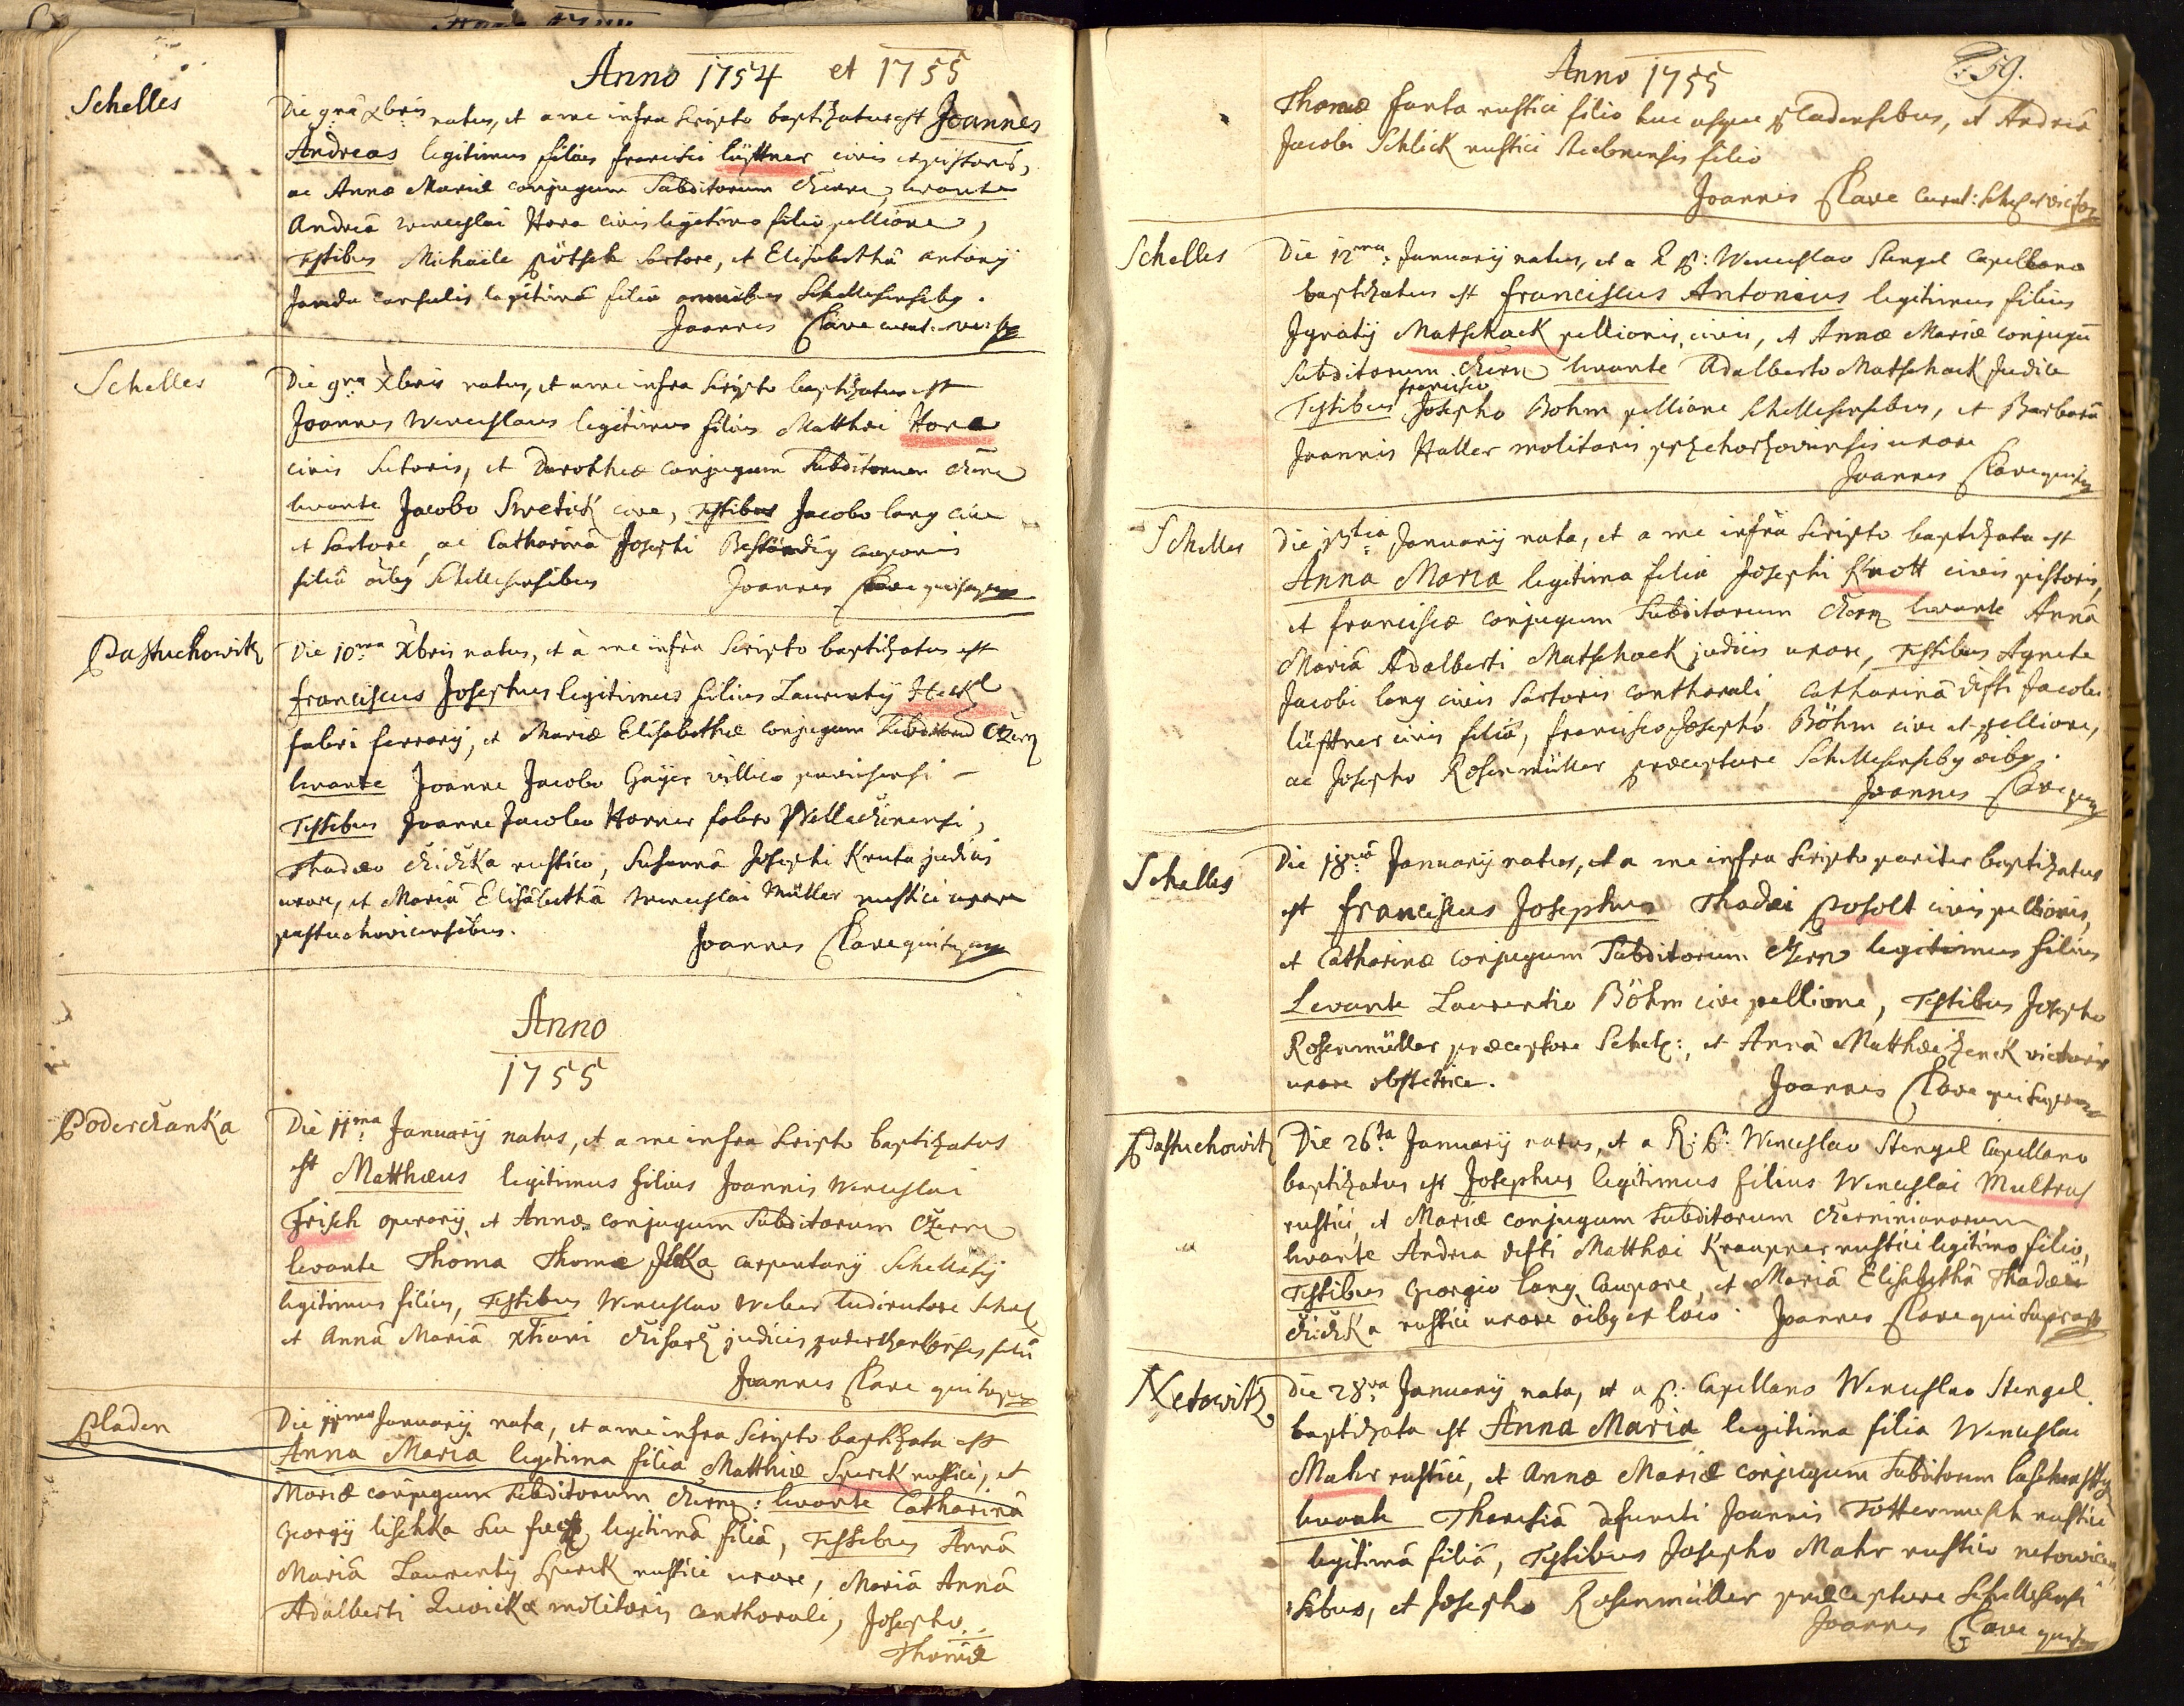 Anno 1754 et 1755
Schelles
Die 9na Xbris natus, et a me infra scripto baptizatus est Joannes
Andreas legitimus filius Francisci Lüftner civis et pistoris,
ac Annæ Mariæ conjugum Subditorum Czern, levante
Andreâ Wenceslai Hora civis legitimo filio pellione,
Testibus Michaële Pötsch sartore, et Elisabethâ Antonij
Janda consulis legitimâ filiâ omnibus Schellesensibq.
Joannes Clave curat:
Schelles
Die 9na Xbris natus, et a me infra scripto baptizatus est
Joannes Wenceslaus legitimus filius Matthæi Hora
civis sutoris, et Dorotheæ conjugum Subditorum Czern
levante Jacobo Swetick cive, Testibus Jacobo Lang cive
et Sartore, ac Catharinâ Josephi Beständig cauponis
filiâ oibq Schellesensibus Joannes Clave qui supra
Pastuchowitz
Die 10ma Xbris natus, et à me infra Scripto baptizatus est
Franciscus Josephus legitimus filius Laurentij Heckl
fabri ferrarij, et Mariæ Elisabethæ conjugum Subditorū Czern
levante Joanne Jacobo Gayer villico
Testibus Joanne Jacobo Horner fabro
Thadæo Cziczka rustico, Susannâ Josephi Kruta judicis
uxore, et Mariâ Elisâbethâ Wenceslai Müller rustici uxore
pastuchovicensibus. Joannes Clave qui supra
Anno
1755
Poderczanka
Die 11ma January natus, et a me infra scripto baptizatus
est Matthæus legitimus filius Joannis Wenceslai
Frisch operarij et Annæ conjugum Subditorum Czern
levante Thoma Thomæ Jlka carpentarij Schellesij
legitimus filius, Testibus Wenceslao Weber ludirectore Schel
et Annâ Mariâ Xtiani judicis filiâ
Joannes Clave qui supra
Pladen
Die 11ma January nata, et a me infra Scripto baptizata est
Anna Maria legitima filia Matthiæ Sperck rustici, et
Mariæ conjugum Subditorum Czern: levante Catharinâ
Georgij Lischka seu legitimâ filiâ, Testibus Annâ
Mariâ Laurentij Sperck rustici uxore, Mariâ Annâ
Adalberti Zwickæ molitoris
Josepho
Thomæ
Anno 1755
59.
Thomæ Fanta rustici filio huc usque Pladensibus, et Andreâ
Jacobi Schlick rustici filio
Joannes Clave curat:
Schelles
Die 12ma January natus, et a R P: Wenceslao Stengel Capellano
baptizatus est Franciscus Antonius legitimus filius
Ignatij Matschack pellionis, civis, et Annæ Mariæ conjugū
Subditorum Czern levante Adalberto Matschack Judice
Francisco
Testibus Josepho Bohm pellione Schellesensibus, et Barbarâ
Joannis Haller molitoris uxore
Joannes Clave qui supra
Schelles
Die 13tia January nata, et a me infra Scripto baptizata est
Anna Maria legitima filia Josephi Knott civis pistoris,
et Franciscæ conjugum Subditorum Czern levante Annâ
Mariâ Adalberti Matschack judicis uxore, Testibus Agnete
Jacobi Lang civis Sartoris Catharinâ dfti Jacobi
Lüftner civis filiâ, Francisco Josepho Böhm cive et pellione,
ac Josepho Rosenmüller præceptore Schellesensibq oibq.
Joannes Clave
Schelles
Die 18va January natus, et a me infra Scripto pariter baptizatus
est Franciscus Josephus Thadæi Posolt civis pellionis,
et Catharinæ conjugum Subditorum Czern legitimus filius
Levante Laurentio Böhm cive pellione, Testibus Josepho
Rosenmüller præceptore Schel:, et Annâ Matthæi
uxore obstetrice. Joannes Clave qui supra
Pastuchowitz
Die 26ta January natus, et a R: P: Wenceslao Stengel Capellano
baptizatus est Josephus legitimus filius Wenceslai Multrus
rustici, et Mariæ conjugum Subditorum Czerninianorum
levante Andrea dfti Matthæi Kraupner rustici legitimo filio,
Testibus Georgio Lang Caupone, et Mariâ Elisabethâ Thadæi
Cziczka rustici uxore oibq ex loco Joannes Clave qui supra
Netowitz
Die 28va January nata, et a P: Capellano Wenceslao Stengel
baptizata est Anna Maria legitima filia Wenceslai
Mahr rustici, et Annæ Mariæ conjugum Subditorum
levante Theresiâ defuncti Joannis rustici
legitimâ filiâ, Testibus Josepho Mahr rustico netowicen-
sibus, et Josepho Rosenmüller præceptore Schellesensi
Joannes Clave qui supra